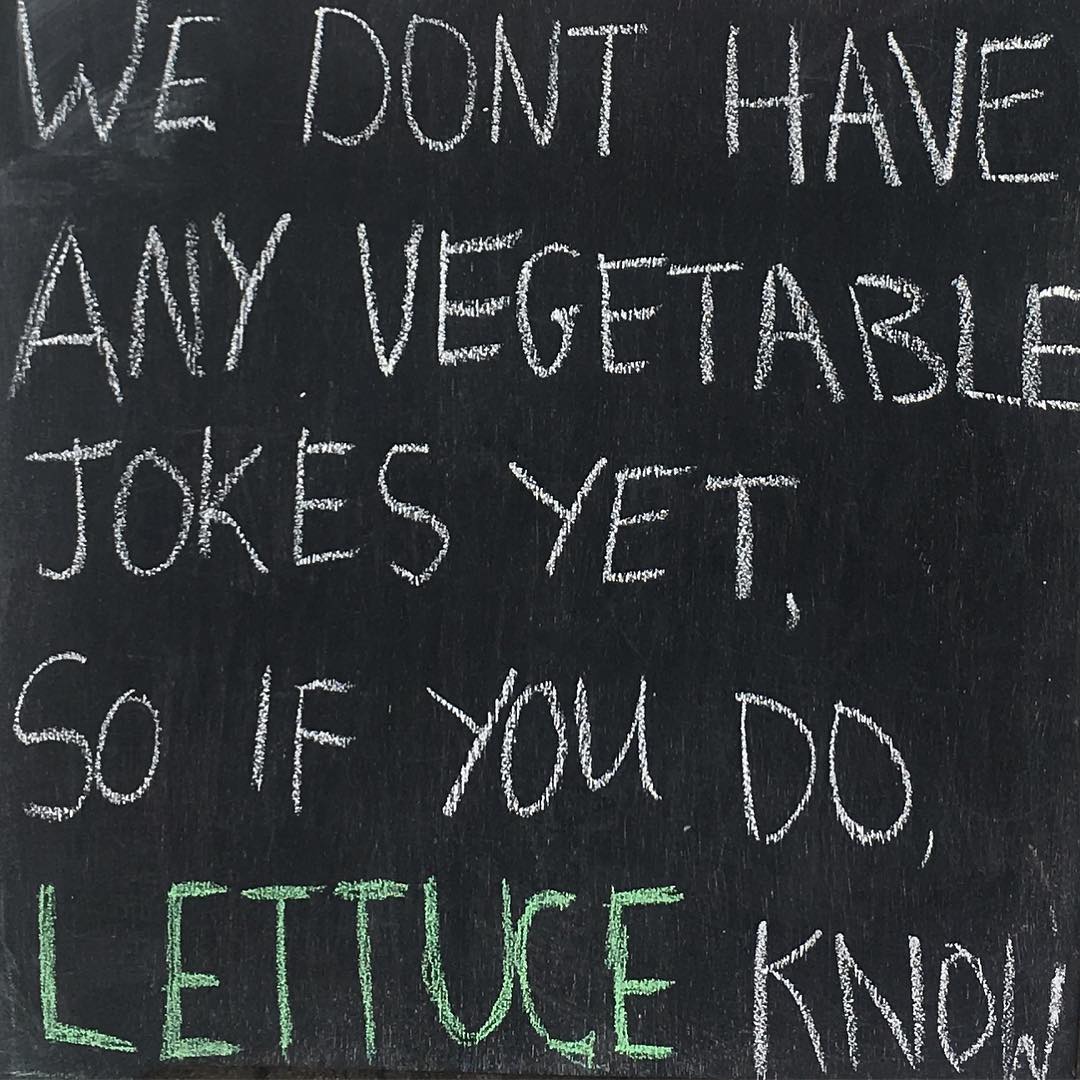 WE DONT HAVE
ANY VEGETABLE
JOKES YET,
SO IF YOU DO,
LETTUCE KNOW